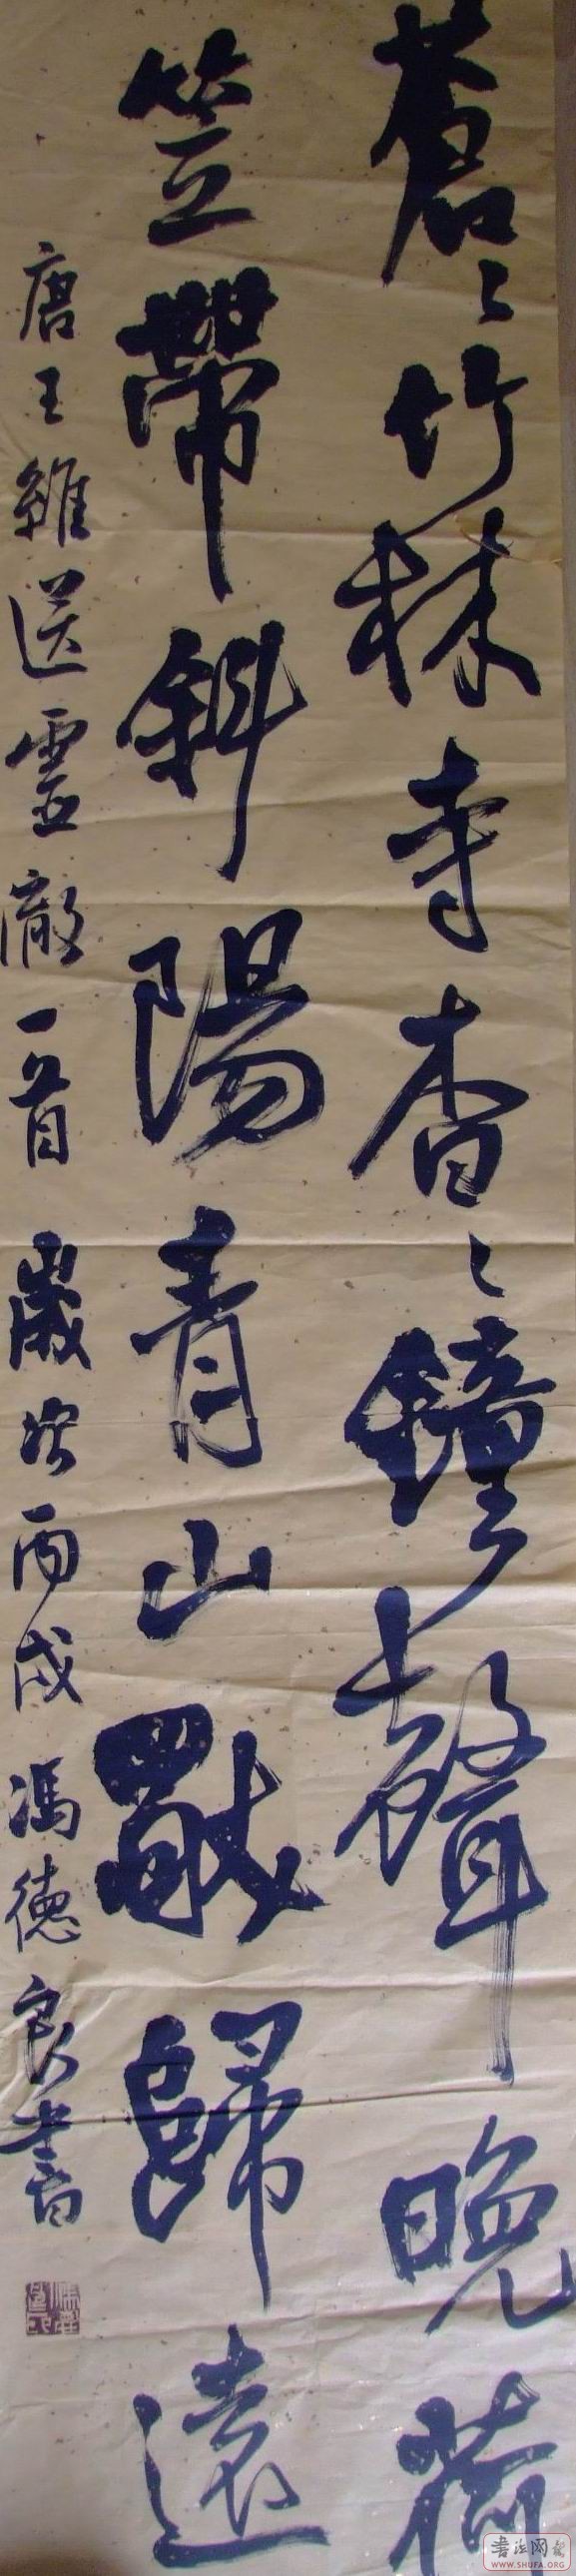 蒼〻竹林寺杳〻鐘聲晚荷
笠帶斜陽青山獨歸遠
唐王維送靈澈一首 歲次丙戌馮德良書
书法网
WWW.SHUFA.ORG